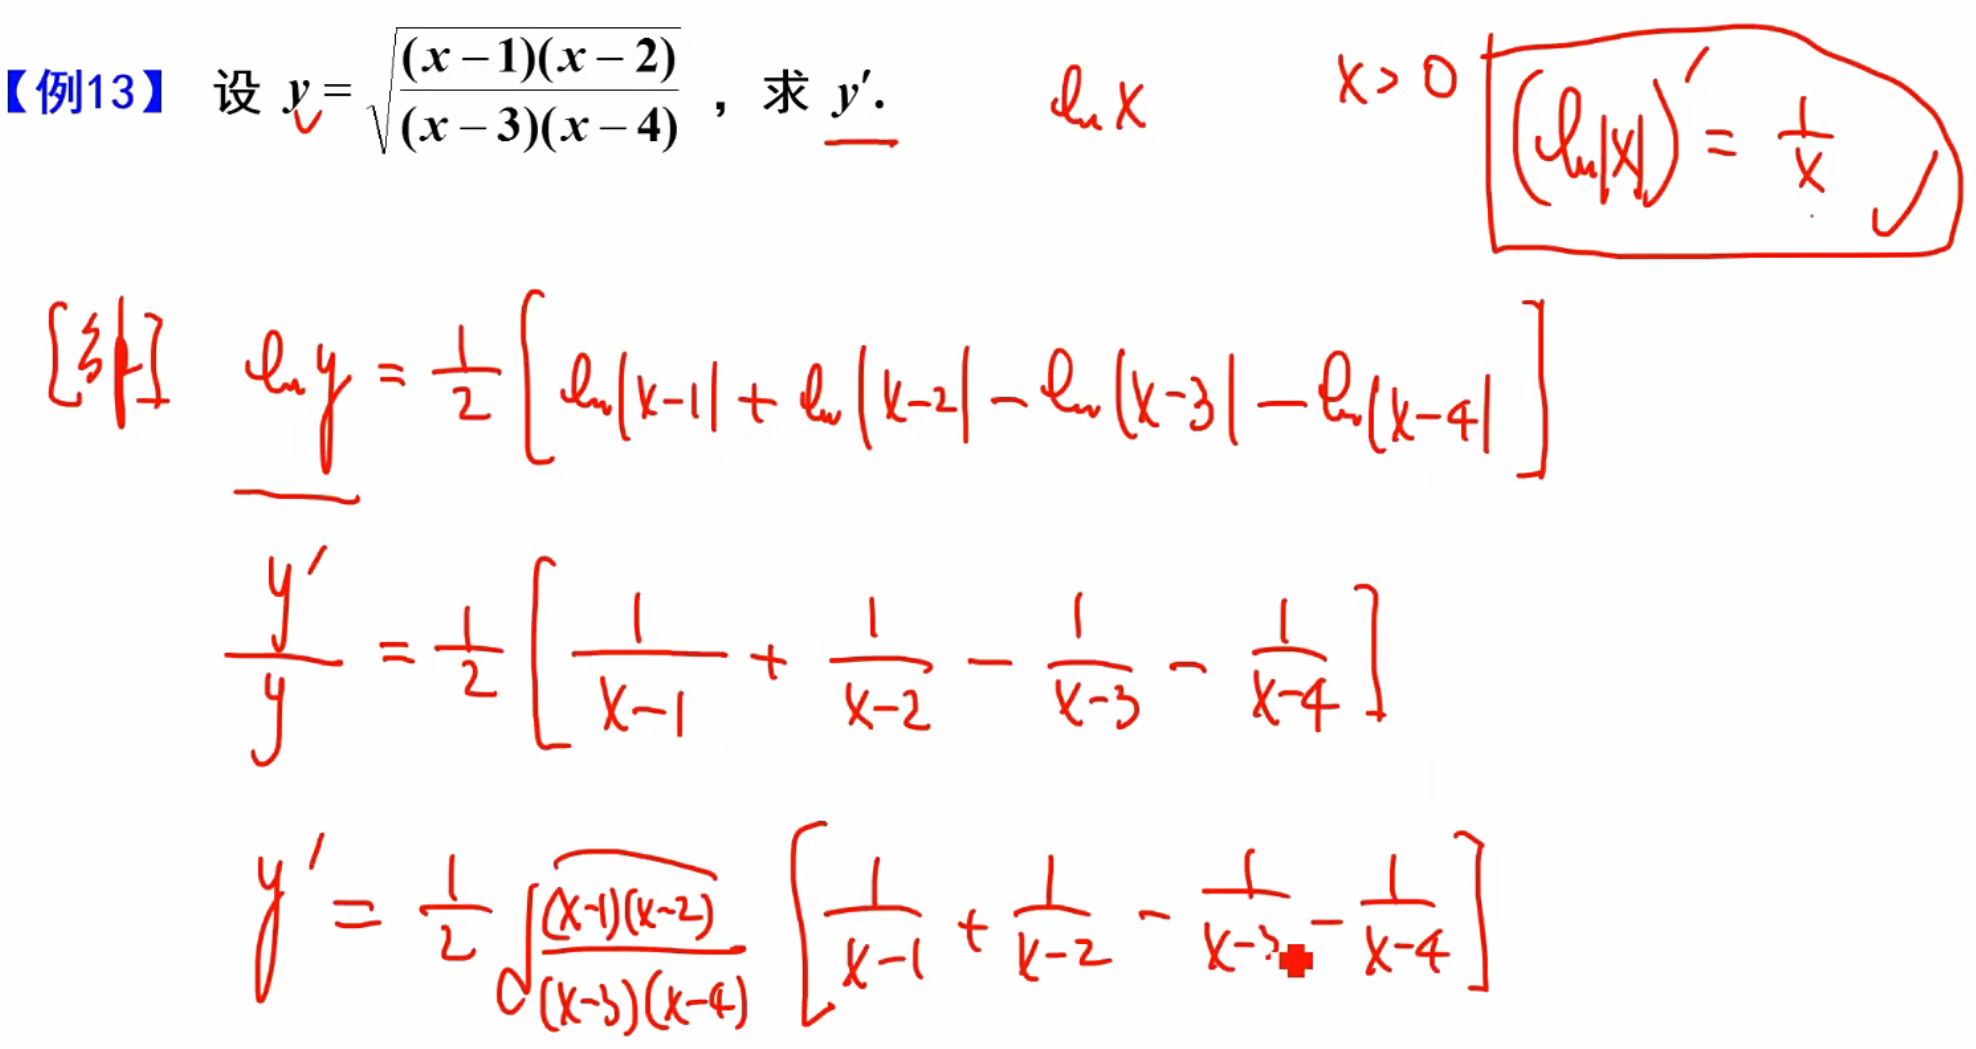 【例13】 设 y = √((x−1)(x−2) / ((x−3)(x−4))) ，求 y′.
ln x
x > 0
(ln|x|)′ = 1/x
[解] ln y = 1/2 [ ln|x−1| + ln|x−2| − ln|x−3| − ln|x−4| ]
y′/y = 1/2 [ 1/(x−1) + 1/(x−2) − 1/(x−3) − 1/(x−4) ]
y′ = 1/2 √((x−1)(x−2) / ((x−3)(x−4))) [ 1/(x−1) + 1/(x−2) − 1/(x−3) − 1/(x−4) ]